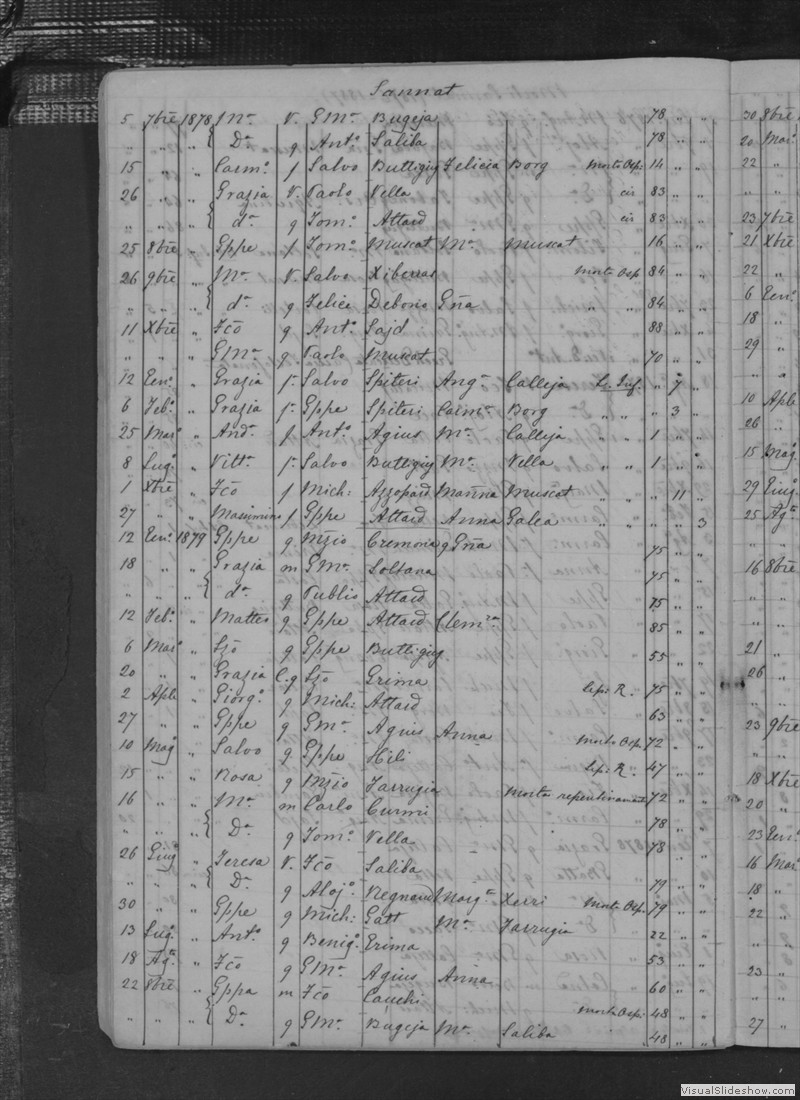 Sannat
5 7bre 1878 Ma. V. GMa. Bugeja 78 " "
" " " Da. g Anto. Saliba 78 " "
15 " " Carmo. f Salvo Buttigieg Felicia Borg morto Osp: 14 " "
26 " " Grazia V. Paolo Vella cis 83 " "
" " " da. g Tomo. Attard cis 83 " "
25 8bre " Gppe f Tomo. Muscat Ma. Muscat 16 " "
26 9bre " Ma. V. Salvo Xiberras morta Osp. 84 " "
" " " da. g Felice Debono Gña " " 84 " "
11 Xbre " Fcõ g Anto. Sajd 88 " "
" " " GMa. g Paolo Muscat 70 " "
12 Gen. " Grazia f. Salvo Spiteri Anga. Calleja Lr. Inf. " 7 "
6 Feb. " Grazia f. Gppe Spiteri Carma. Borg " " " 3 "
25 Mar. " Anda. f Anto. Agius Ma. Calleja " " 1 " "
8 Lug. " Vitta. f. Salvo Buttigieg Ma. Vella " " 1 " "
1 Xbre " Fcõ f Mich: Azzopard Marina Muscat " " " 11 "
27 " " Massimino f Gppe Attard Anna Galea " " " " 3
12 Gen. 1879 Gppe g Nzio Cremona g Gña 75 " "
18 " " Grazia m GMa. Soltana 75 " "
" " " da. g Publio Attard 75 " "
12 Feb. " Matteo g Gppe Attard Clemza. 85 " "
6 Mar. " g Gppe Buttigieg 55 " "
20 " " Grazia C.g Grima 75 " "
2 Aple " Giorgo. g Mich: Attard 63 " "
27 " " Gppe g GMa. Agius Anna morto Osp. 72 " "
10 Mag " Salvo g Gppe Hili 47 " "
15 " " Rosa g Nzio Farrugia morta repentinamte 72 " "
16 " " Ma. m Carlo Curmi 78 " "
" " " Da. g Tomo. Vella 78 " "
26 Giug " Teresa V. Fcõ Saliba 79 " "
" " " Da. g Alojo. Regnaud Marga. Xerri morta Osp. 79 " "
30 " " Gppe g Mich: Gatt Ma. Farrugia 22 " "
13 Lug. " Anto. g Benigo. Grima 53 " "
18 Aga. " Fcõ g GMa. Agius Anna 60 " "
22 8bre " Gppa m Fcõ Cauchi morta Osp: 48 " "
" " " Da. g GMa. Bugeja Ma. Saliba 48 " "
30 8bre
20 Mar.
22 "
23 7bre
21 Xbre
22 "
6 Gen.
18 "
29 "
10 Aple
26 "
15 Mag.
29 Giug.
25 Aga.
16 8bre
21 "
26 "
23 9bre
18 Xbre
20 "
23 Gen.
16 Mar.
18 "
22 "
23 "
27 "
VisualSlideshow.com